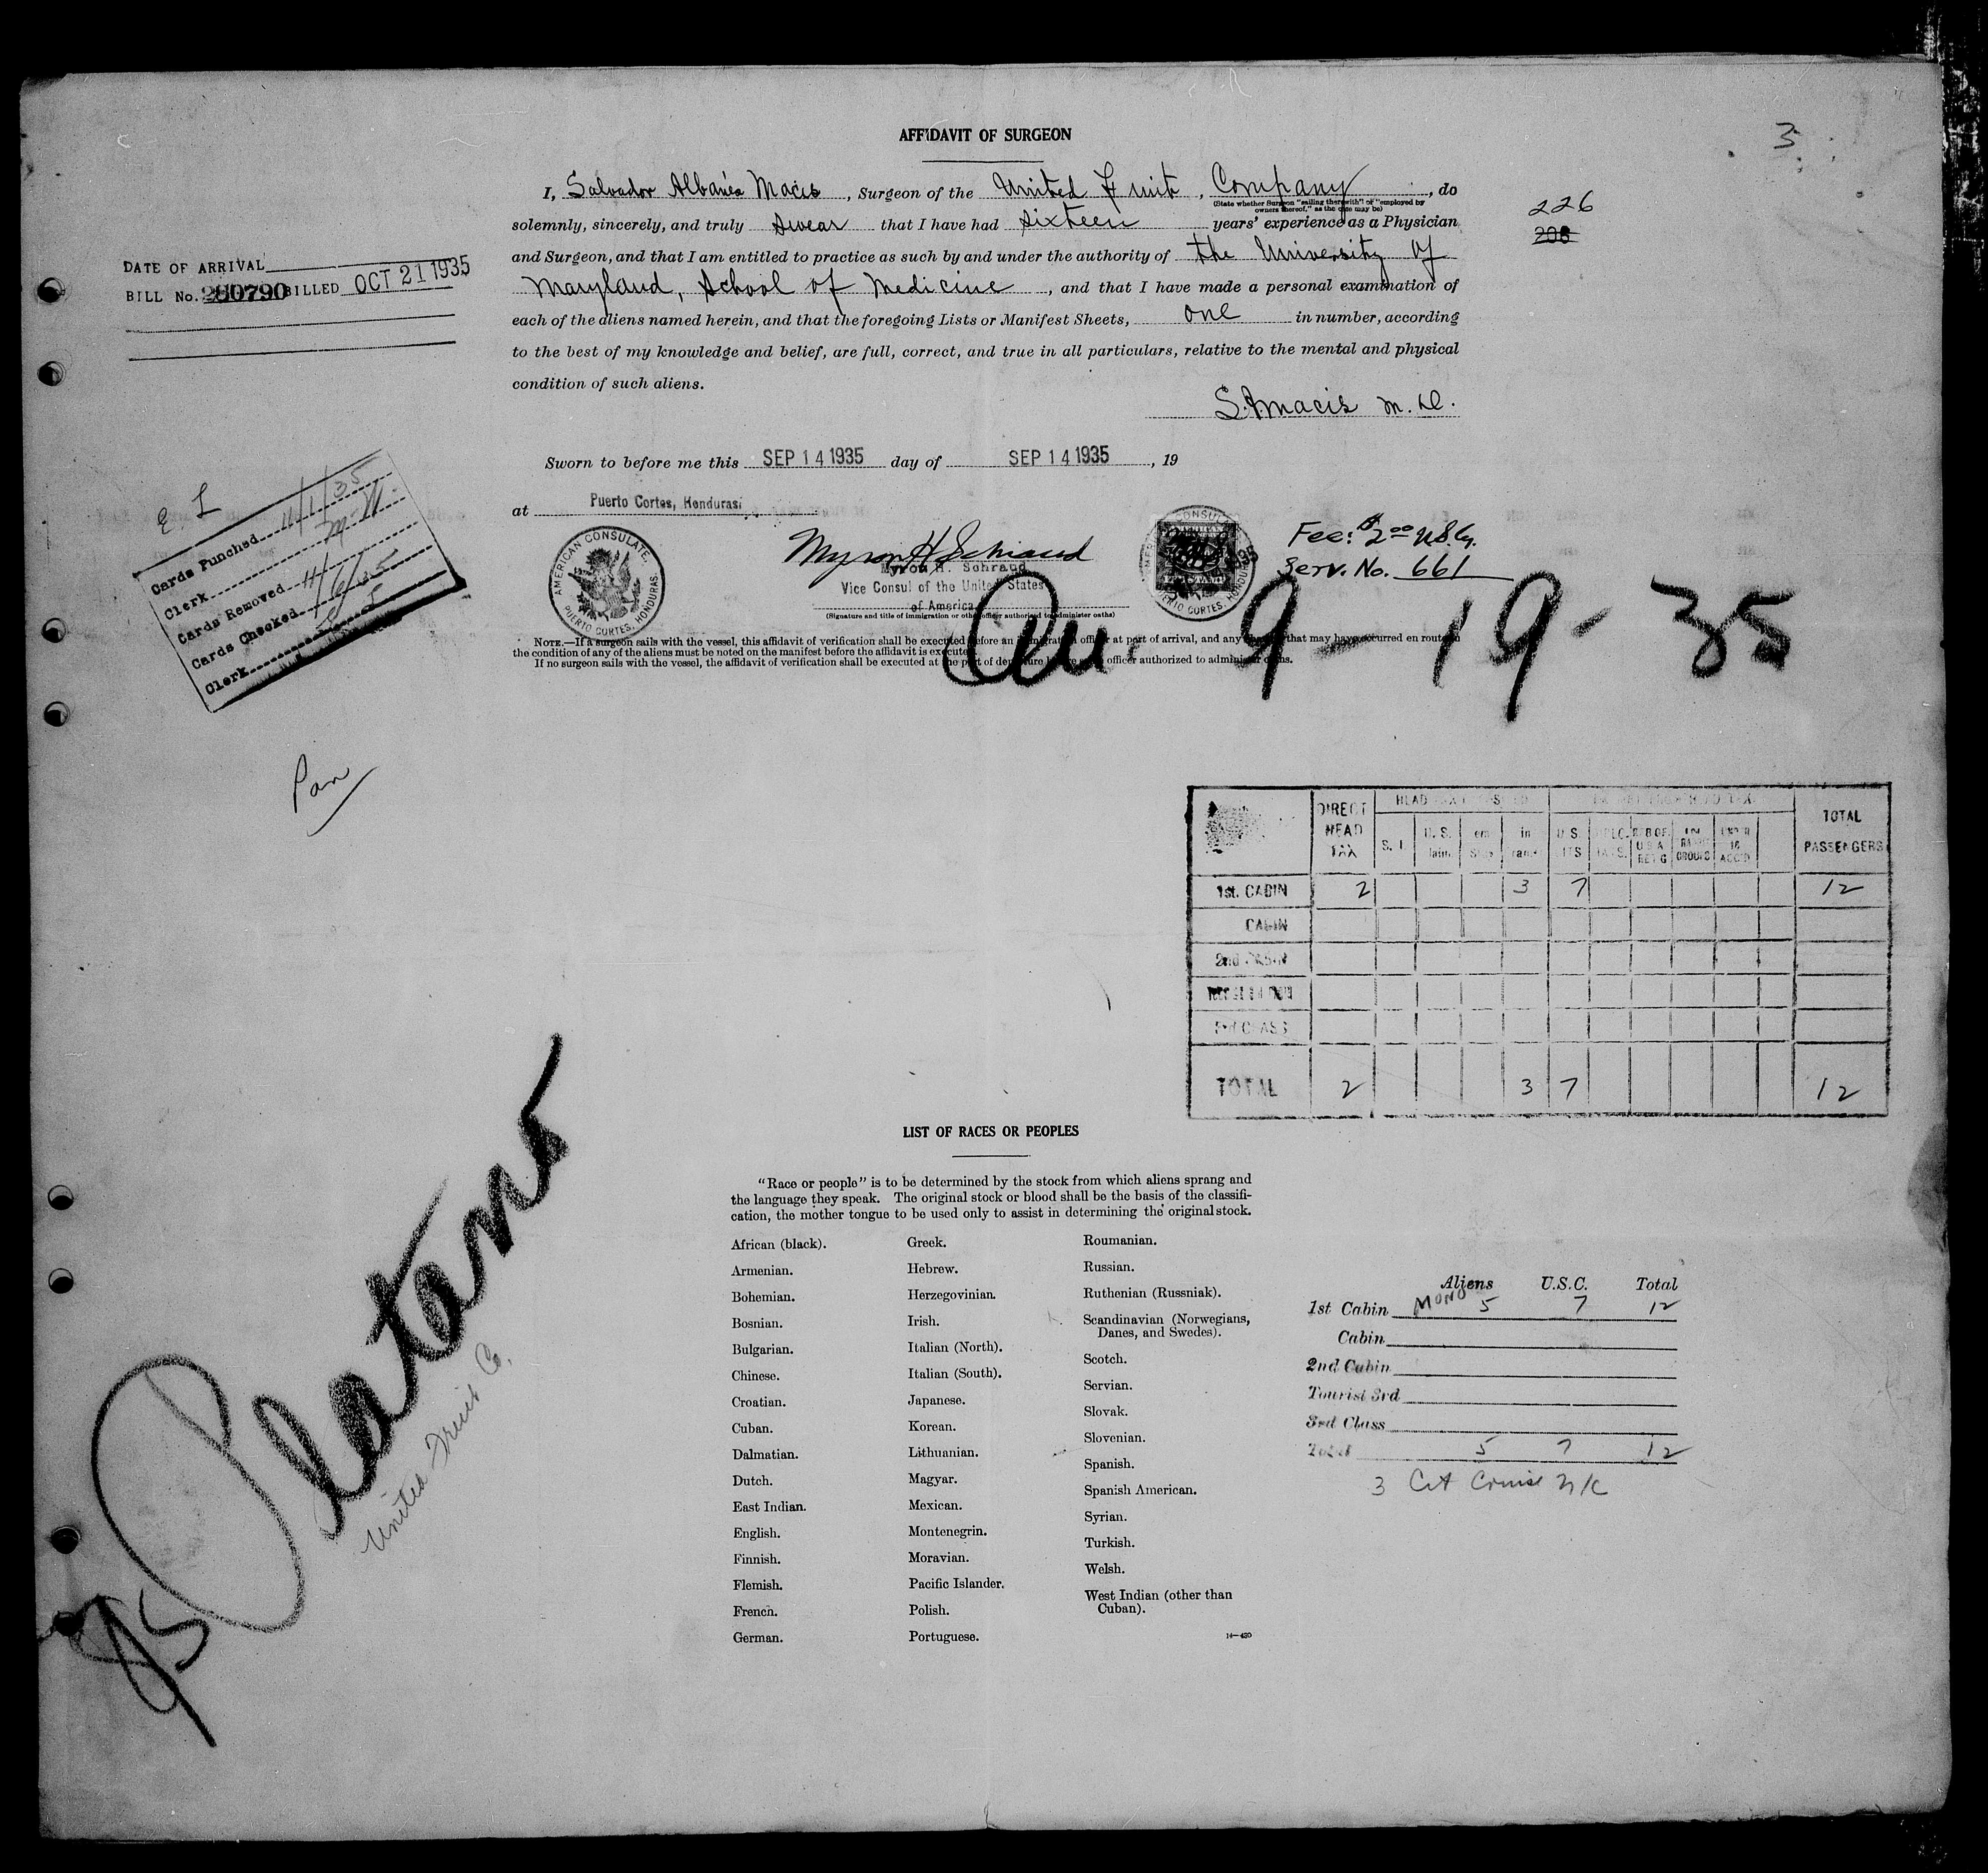 AFFIDAVIT OF SURGEON
3
I, Salvador Albanés Macis, Surgeon of the United Fruit, Company, do
(State whether Surgeon "sailing therewith" or "employed by owners thereof," as the case may be)
solemnly, sincerely, and truly swear that I have had sixteen years' experience as a Physician
and Surgeon, and that I am entitled to practice as such by and under the authority of the University of
Maryland, School of Medicine, and that I have made a personal examination of
each of the aliens named herein, and that the foregoing Lists or Manifest Sheets, one in number, according
to the best of my knowledge and belief, are full, correct, and true in all particulars, relative to the mental and physical
condition of such aliens.
S. A. Macis M. D.
226
208
DATE OF ARRIVAL
BILL No. 280790 BILLED OCT 21 1935
Sworn to before me this SEP 14 1935 day of SEP 14 1935, 19
at Puerto Cortes, Honduras
AMERICAN CONSULATE.
PUERTO CORTES, HONDURAS.
Myron H. Schraud
Myron H. Schraud
Vice Consul of the United States
of America
(Signature and title of immigration or other officer authorized to administer oaths)
Fee: $2.00 U.S.Cy.
Serv. No. 661
E. L
Cards Punched 11/1/35
Clerk M-N.
Cards Removed
Cards Checked 11/6/35
Clerk
NOTE.—If a surgeon sails with the vessel, this affidavit of verification shall be executed before an immigration officer at port of arrival, and any changes that may have occurred en route in
the condition of any of the aliens must be noted on the manifest before the affidavit is executed.
If no surgeon sails with the vessel, the affidavit of verification shall be executed at the port of departure before an officer authorized to administer oaths.
Arr. 9-19-35
Pan
DIRECT HEAD TAX
S. I.
U. S.
in trans
U. S. CITS
TOTAL PASSENGERS
1st. CABIN 2 3 7 12
CABIN
2nd CABIN
3rd CLASS
TOTAL 2 3 7 12
Platano
United Fruit Co.
95
LIST OF RACES OR PEOPLES
"Race or people" is to be determined by the stock from which aliens sprang and
the language they speak. The original stock or blood shall be the basis of the classifi-
cation, the mother tongue to be used only to assist in determining the original stock.
African (black).
Armenian.
Bohemian.
Bosnian.
Bulgarian.
Chinese.
Croatian.
Cuban.
Dalmatian.
Dutch.
East Indian.
English.
Finnish.
Flemish.
French.
German.
Greek.
Hebrew.
Herzegovinian.
Irish.
Italian (North).
Italian (South).
Japanese.
Korean.
Lithuanian.
Magyar.
Mexican.
Montenegrin.
Moravian.
Pacific Islander.
Polish.
Portuguese.
Roumanian.
Russian.
Ruthenian (Russniak).
Scandinavian (Norwegians,
Danes, and Swedes).
Scotch.
Servian.
Slovak.
Slovenian.
Spanish.
Spanish American.
Syrian.
Turkish.
Welsh.
West Indian (other than
Cuban).
14—430
Aliens U.S.C. Total
1st Cabin MONO 5 7 12
Cabin
2nd Cabin
Tourist 3rd
3rd Class
Total 5 7 12
3 Cit Cruise